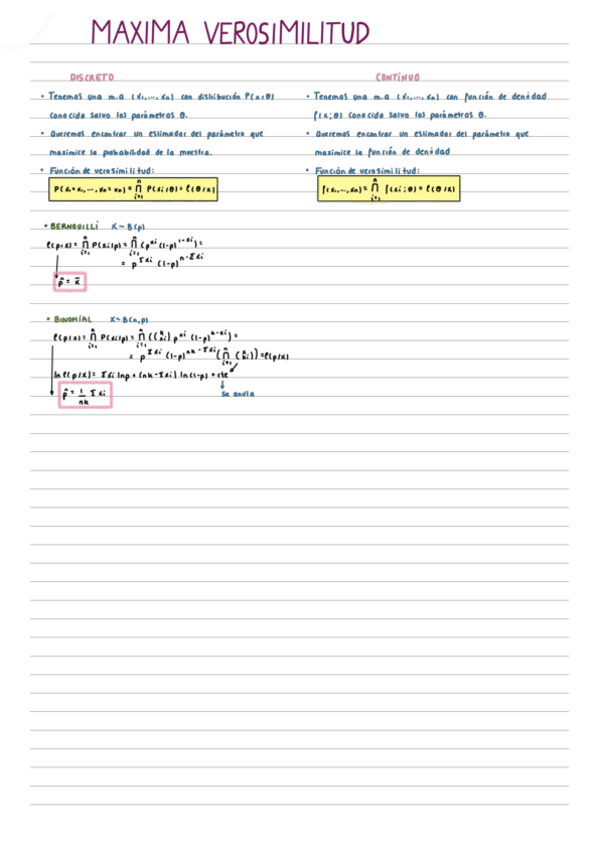 MAXIMA VEROSIMILITUD
DISCRETO
• Tenemos una m.a (x₁,...,xₙ) con distribución P(x;θ)
conocida salvo los parámetros θ.
• Queremos encontrar un estimador del parámetro que
maximice la probabilidad de la muestra.
• Función de verosimilitud:
P(X₁=x₁,...,Xₙ=xₙ) = ∏ⁿᵢ₌₁ P(xᵢ;θ) = ℓ(θ/x)
CONTINUO
• Tenemos una m.a (x₁,...,xₙ) con función de densidad
f(x;θ) conocida salvo los parámetros θ.
• Queremos encontrar un estimador del parámetro que
maximice la función de densidad
• Función de verosimilitud:
f(x₁,...,xₙ) = ∏ⁿᵢ₌₁ f(xᵢ;θ) = ℓ(θ/x)
• BERNOUILLI X~B(p)
ℓ(p/x) = ∏ⁿᵢ₌₁ P(xᵢ/p) = ∏ⁿᵢ₌₁ (p^xᵢ (1-p)^1-xᵢ) =
= p^Σxᵢ (1-p)^n-Σxᵢ
p̂ = x̄
• BINOMIAL X~B(n,p)
ℓ(p/x) = ∏ⁿᵢ₌₁ P(xᵢ/p) = ∏ⁿᵢ₌₁ ((k xᵢ) p^xᵢ (1-p)^k-xᵢ) =
= p^Σxᵢ (1-p)^nk-Σxᵢ (∏ⁿᵢ₌₁ (k xᵢ)) = ℓ(p/x)
ln ℓ(p/x) = Σxᵢ lnp + (nk-Σxᵢ) ln(1-p) + cte
p̂ = 1/nk Σxᵢ
se anula